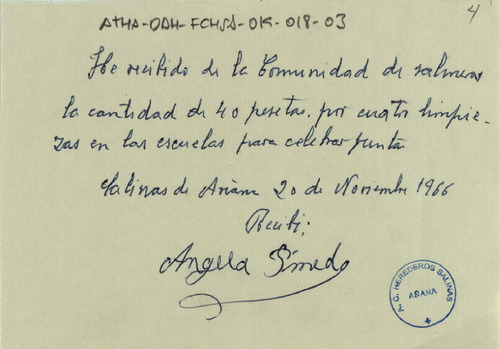 4
ATHA-DAH-FCHSA-OK-018-03
He recibido de la Comunidad de salineros
la cantidad de 40 pesetas, por cuatro limpie-
zas en las escuelas para celebrar juntas
Salinas de Añana 20 de Noviembre 1966
Recibi;
Angela
HEREDEROS SALINAS
AÑANA